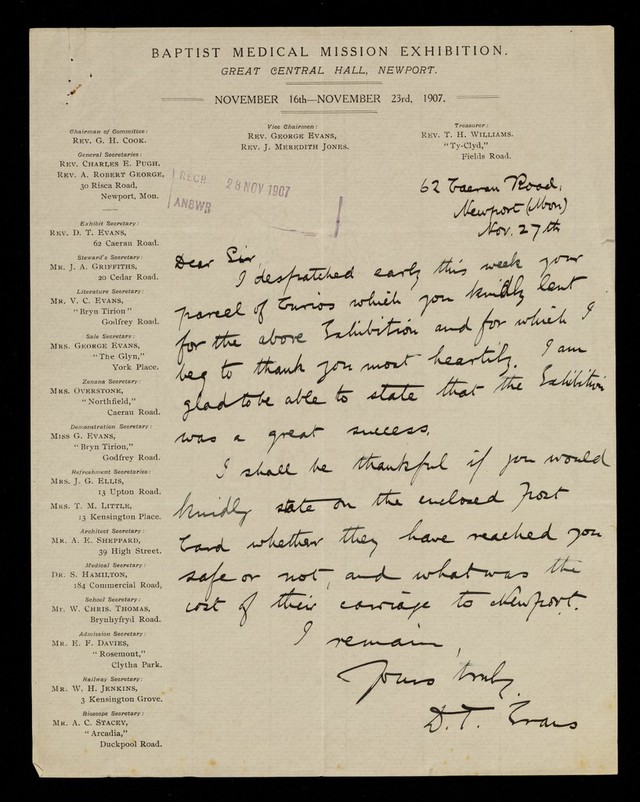 BAPTIST MEDICAL MISSION EXHIBITION.
GREAT CENTRAL HALL, NEWPORT.
NOVEMBER 16th—NOVEMBER 23rd, 1907.
Chairman of Committee:
REV. G. H. COOK.
General Secretaries:
REV. CHARLES E. PUGH,
REV. A. ROBERT GEORGE,
30 Risca Road,
Newport, Mon.
Vice Chairmen:
REV. GEORGE EVANS,
REV. J. MEREDITH JONES.
Treasurer:
REV. T. H. WILLIAMS.
"Ty-Clyd,"
Fields Road.
Exhibit Secretary:
REV. D. T. EVANS,
62 Caerau Road.
Steward's Secretary:
MR. J. A. GRIFFITHS,
20 Cedar Road.
Literature Secretary:
MR. V. C. EVANS,
"Bryn Tirion"
Godfrey Road.
Sale Secretary:
MRS. GEORGE EVANS,
"The Glyn,"
York Place.
Zenana Secretary:
MRS. OVERSTONE,
"Northfield,"
Caerau Road.
Demonstration Secretary:
MISS G. EVANS,
"Bryn Tirion,"
Godfrey Road.
Refreshment Secretaries:
MRS. J. G. ELLIS,
13 Upton Road.
MRS. T. M. LITTLE,
13 Kensington Place.
Architect Secretary:
MR. A. E. SHEPPARD,
39 High Street.
Medical Secretary:
DR. S. HAMILTON,
184 Commercial Road,
School Secretary:
Mr. W. CHRIS. THOMAS,
Brynhyfryd Road.
Admission Secretary:
MR. E. F. DAVIES,
"Rosemont,"
Clytha Park.
Railway Secretary:
MR. W. H. JENKINS,
3 Kensington Grove.
Bioscope Secretary:
MR. A. C. STACEY,
"Arcadia,"
Duckpool Road.
RECD.
28 NOV 1907
ANSWR
62 Caerau Road,
Newport (Mon)
Nov. 27th
Dear Sir,
I despatched early this week your
parcel of Curios which you kindly lent
for the above Exhibition and for which I
beg to thank you most heartily. I am
glad to be able to state that the Exhibition
was a great success.
I shall be thankful if you would
kindly state on the enclosed Post
Card whether they have reached you
safe or not, and what was the
cost of their carriage to Newport.
I remain,
Yours truly,
D. T. Evans